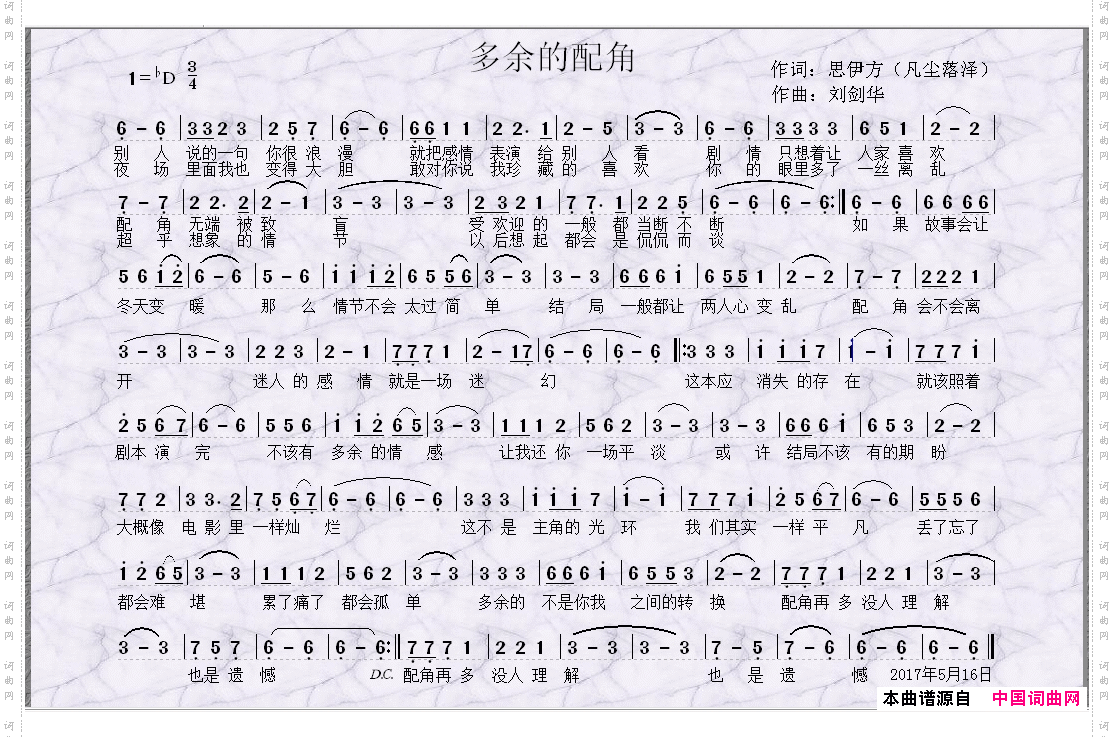 多余的配角
1=♭D 3/4
作词：思伊方（凡尘落泽）
作曲：刘剑华
6 - 6 | 3 3 2 3 | 2 5 7 | 6 - 6 | 6 6 1 1 | 2 2. 1 | 2 - 5 | 3 - 3 | 6 - 6 | 3 3 3 3 | 6 5 1 | 2 - 2 |
别 人 说的一句 你很 浪 漫 就把感情 表演 给 别 人 看 剧 情 只想着让 人家 喜 欢
夜 场 里面我也 变得 大 胆 敢对你说 我珍 藏 的 喜 欢 你 的 眼里多了 一丝 离 乱
7 - 7 | 2 2. 2 | 2 - 1 | 3 - 3 | 3 - 3 | 2 3 2 1 | 7 7. 1 | 2 2 5 | 6 - 6 | 6 - 6 :‖ 6 - 6 | 6 6 6 6 |
配 角 无端 被 致 盲 受 欢迎 的 一般 都 当断 不 断 如 果 故事会让
超 乎 想象 的 情 节 以 后想 起 都会 是 侃侃 而 谈
5 6 1 2 | 6 - 6 | 5 - 6 | 1 1 1 2 | 6 5 5 6 | 3 - 3 | 3 - 3 | 6 6 6 1 | 6 5 5 1 | 2 - 2 | 7 - 7 | 2 2 2 1 |
冬天变 暖 那 么 情节不会 太过 简 单 结 局 一般都让 两人心 变 乱 配 角 会不会离
3 - 3 | 3 - 3 | 2 2 3 | 2 - 1 | 7 7 7 1 | 2 - 1 7 | 6 - 6 | 6 - 6 ‖: 3 3 3 | 1 1 1 7 | 1 - 1 | 7 7 7 1 |
开 迷人 的 感 情 就是一场 迷 幻 这本应 消失 的存 在 就该照着
2 5 6 7 | 6 - 6 | 5 5 6 | 1 1 2 6 5 | 3 - 3 | 1 1 1 2 | 5 6 2 | 3 - 3 | 3 - 3 | 6 6 6 1 | 6 5 3 | 2 - 2 |
剧本 演 完 不该有 多余 的情 感 让我还 你 一场平 淡 或 许 结局不该 有的期 盼
7 7 2 | 3 3. 2 | 7 5 6 7 | 6 - 6 | 6 - 6 | 3 3 3 | 1 1 1 7 | 1 - 1 | 7 7 7 1 | 2 5 6 7 | 6 - 6 | 5 5 5 6 |
大概像 电 影 里 一样灿 烂 这不 是 主角的 光 环 我 们其实 一样 平 凡 丢了忘了
1 2 6 5 | 3 - 3 | 1 1 1 2 | 5 6 2 | 3 - 3 | 3 3 3 | 6 6 6 1 | 6 5 5 3 | 2 - 2 | 7 7 7 1 | 2 2 1 | 3 - 3 |
都会难 堪 累了痛了 都会孤 单 多余的 不是你我 之间的转 换 配角再 多 没人 理 解
3 - 3 | 7 5 7 | 6 - 6 | 6 - 6 :‖ 7 7 7 1 | 2 2 1 | 3 - 3 | 3 - 3 | 7 - 5 | 7 - 6 | 6 - 6 | 6 - 6 ‖
也是 遗 憾 D.C. 配角再 多 没人 理 解 也 是 遗 憾 2017年5月16日
本曲谱源自 中国词曲网